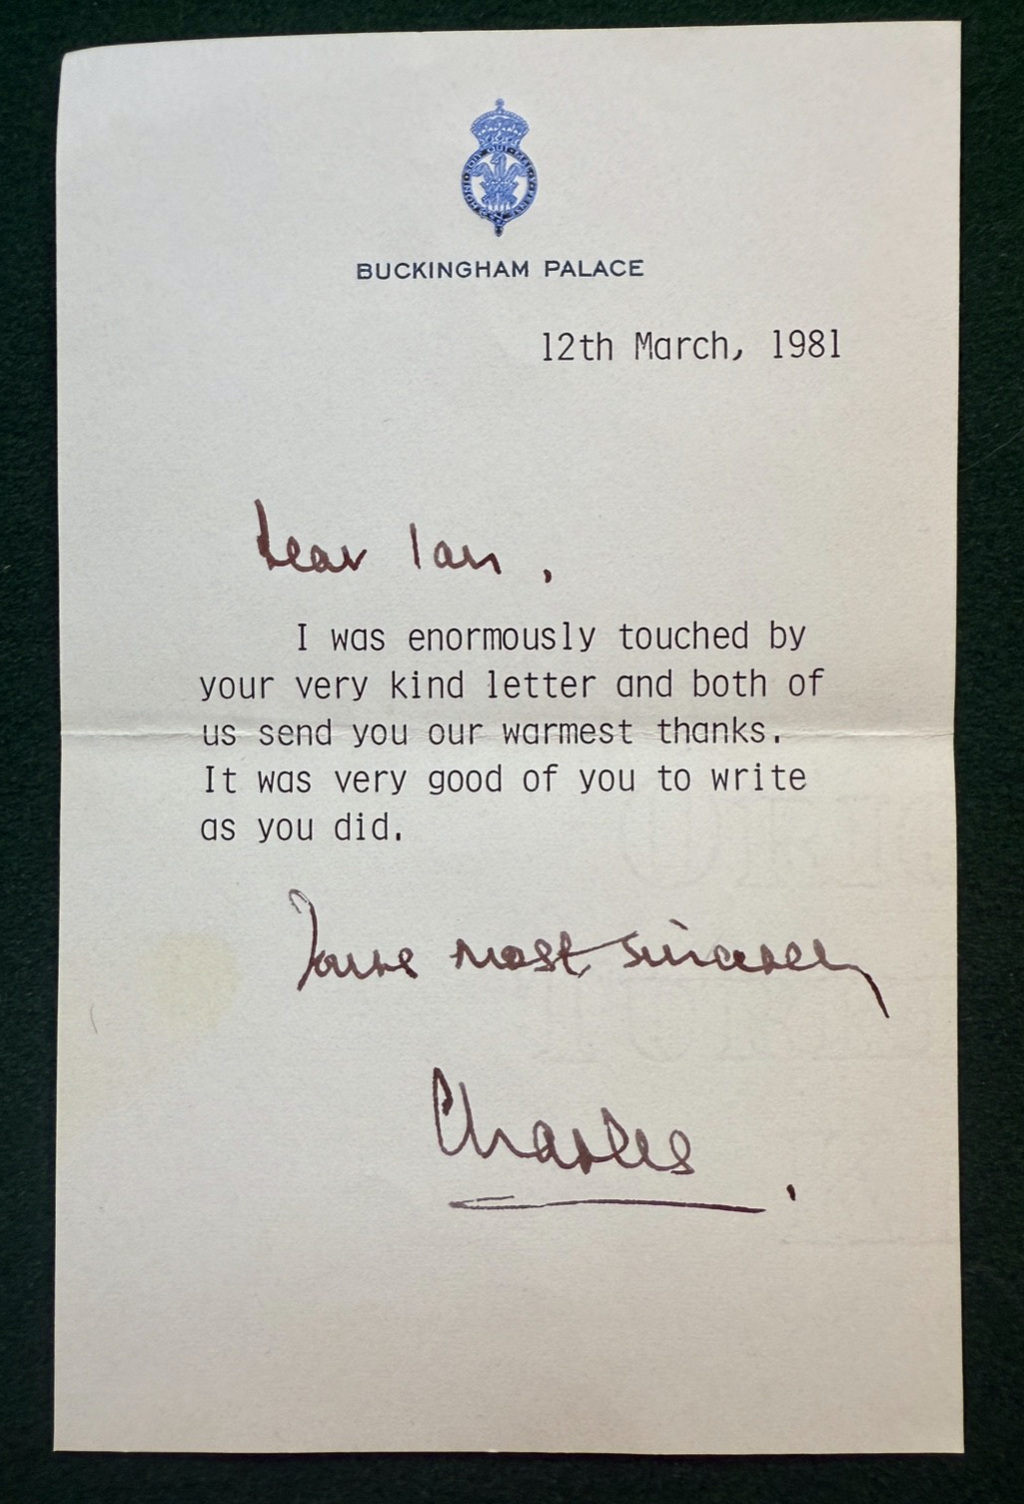 BUCKINGHAM PALACE
12th March, 1981
Dear Ian,
I was enormously touched by
your very kind letter and both of
us send you our warmest thanks.
It was very good of you to write
as you did.
Yours most sincerely
Charles.